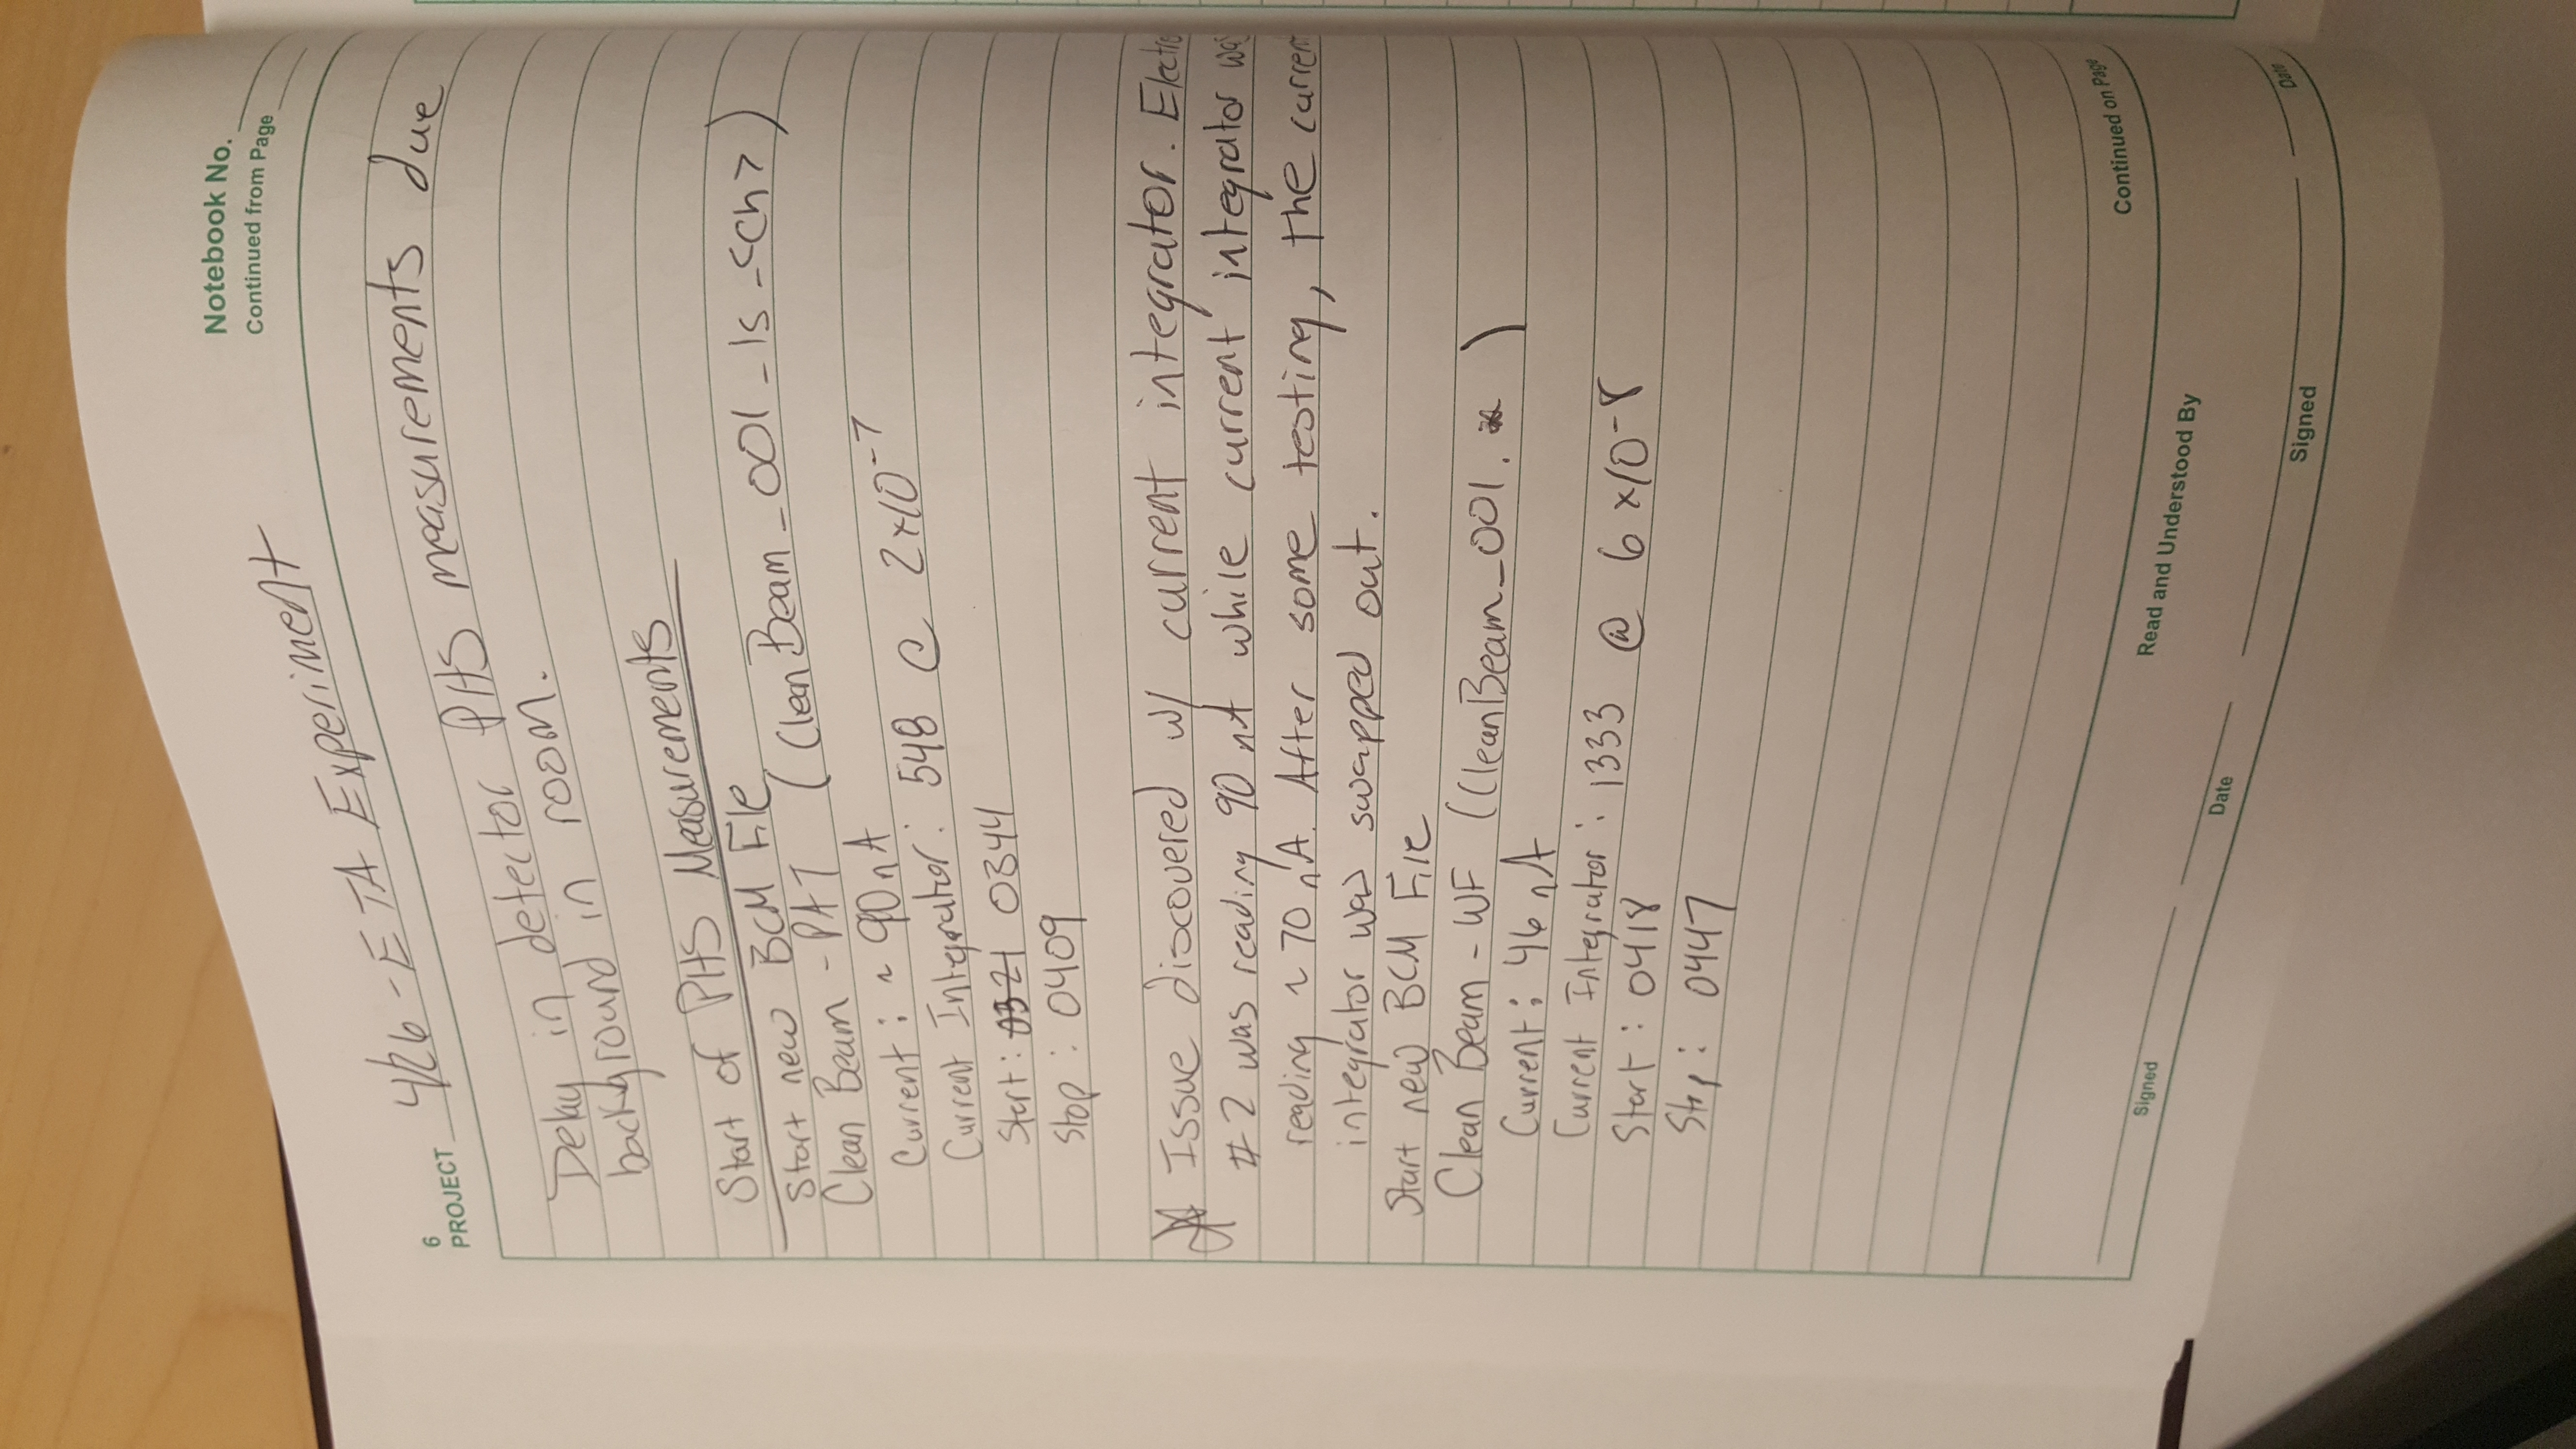 Notebook No.
Continued from Page
6
PROJECT 4/26 - ETA Experiment
Delay in detector PHS measurements due
background in room.
Start of PHS Measurements
Start new BCM File
Clean Beam - PA7 (CleanBeam_001_ls_sch7)
Current: ~90nA
Current Integrator: 548 @ 2×10⁻⁷
Start: 0344
Stop: 0409
Issue discovered w/ current integrator. Electro
#2 was reading 90 nA while current integrator was
reading ~70 nA. After some testing, the current
integrator was swapped out.
Start new BCM File
Clean Beam - WF (CleanBeam_001. )
Current: 46 nA
Current Integrator: 1333 @ 6×10⁻⁸
Start: 0418
Stop: 0447
Continued on Page
Read and Understood By
Signed
Date
Signed
Date